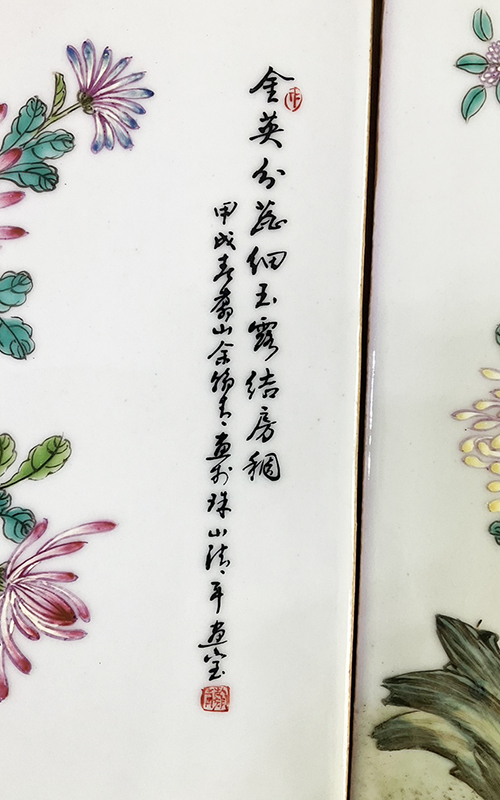 金英分蕊细玉露结房稠
甲戌春翥山余翰青画于珠山清平画室